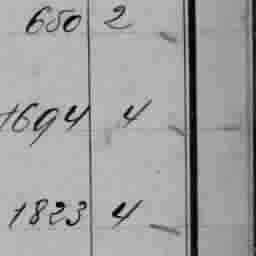 650 2
1694 4
1823 4